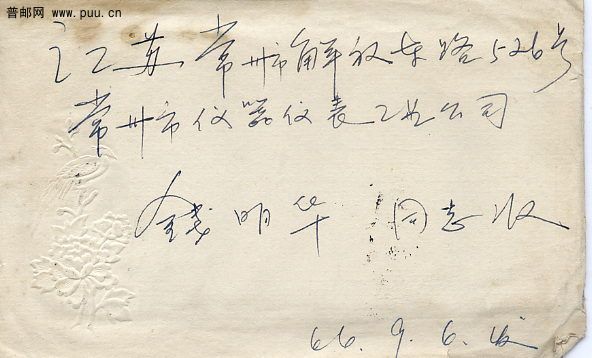 普邮网 www.puu.cn
江苏常州市解放东路526号
常州市仪器仪表工业公司
钱明华 同志收
66.9.6.发